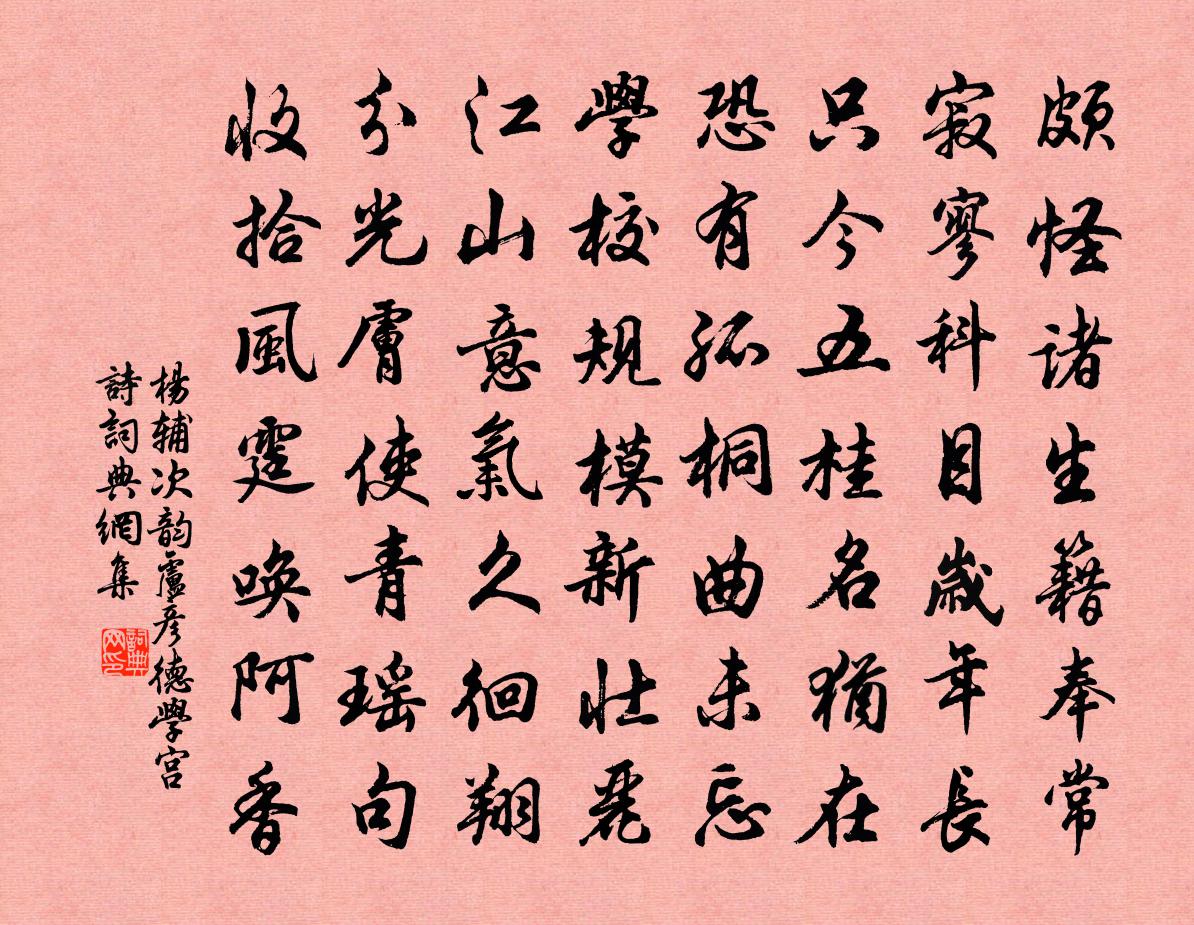 頗怪諸生籍奉常
寂寥科目歲年長
只今五桂名猶在
恐有孤桐曲未忘
學校規模新壯麗
江山意氣久徊翔
分光膚使青瑶句
收拾風霆喚阿香
楊辅次韵盧彦德學宫
詩詞典網集
詞典网印